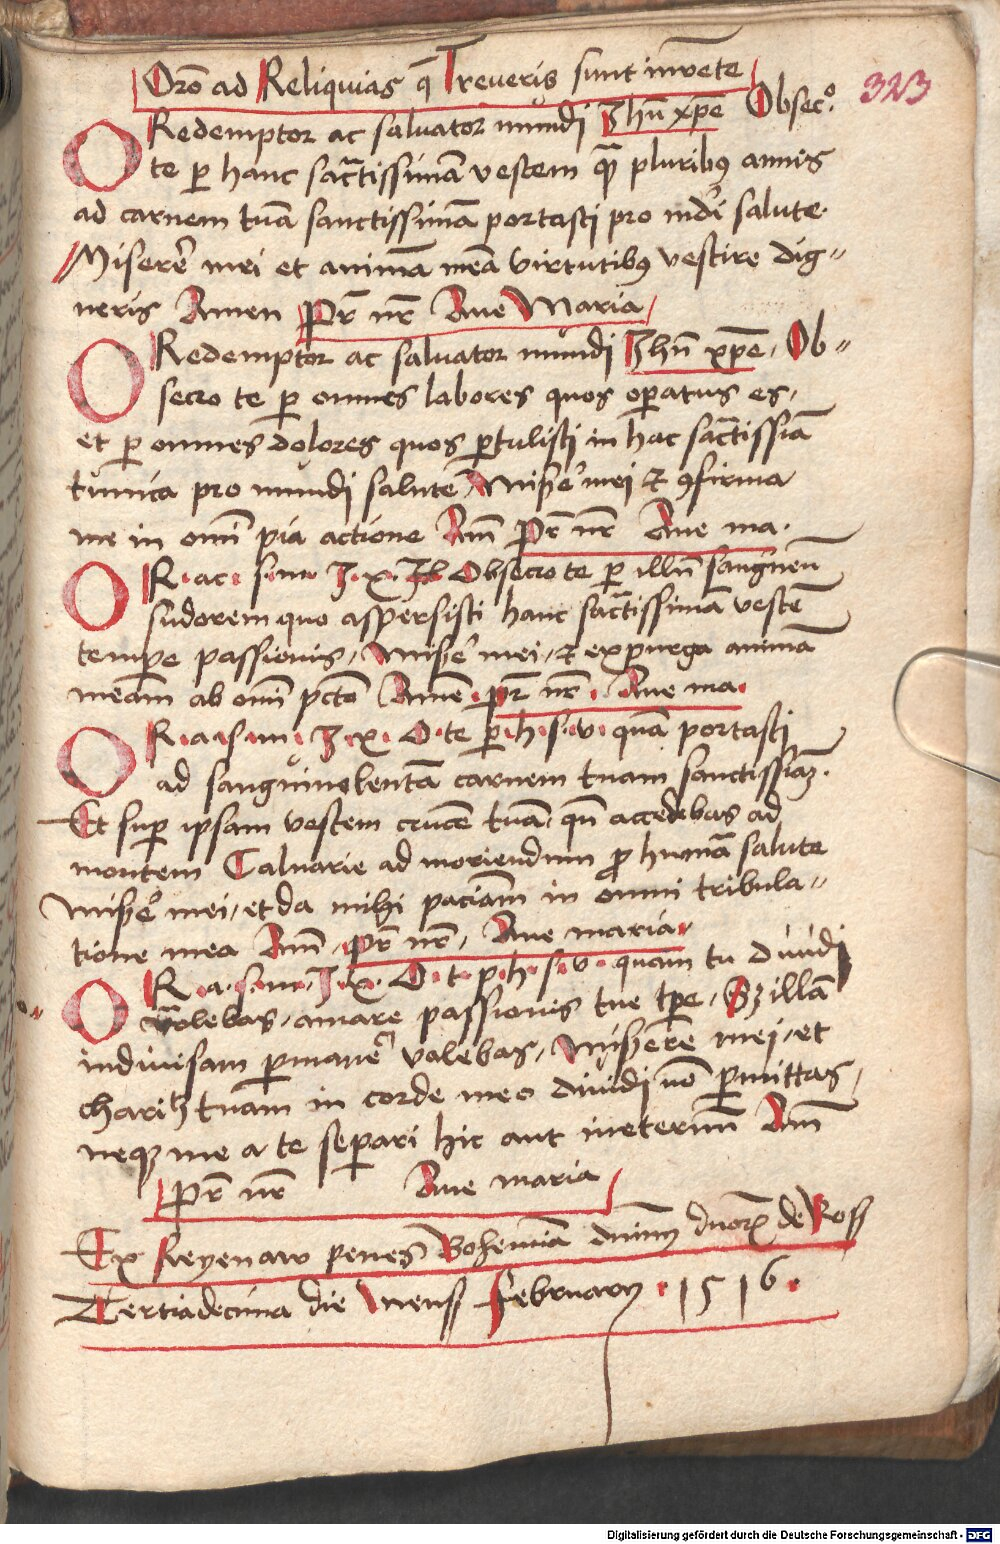 Orō ad Reliquias q̄ Treveris sunt invēte
323
O Redemptor ac salvator mundi Jhū xp̄e Obsecº
te p hanc sāctissimā vestem quā pluribꝰ annis
ad carnem tuā sanctissimā portasti pro mdi salute.
Miserē mei et animā meā virtutibꝰ vestire dig=
neris Amen Pr̄ nr̄ Ave Maria
O Redemptor ac salvator mundi Jhū xp̄e, Ob=
secro te p omnes labores quos opatus es,
et p omnes dolores quos ptulisti in hac sāctissiā
tunica pro mundi salute, Miserē mei & ꝯfirma
me in omī pia actione Am̄ Pr̄ nr̄ Ave ma.
O R. ac. s. m. J. x. Obsecro te p illū sanguineū
sudorem quo aspersisti hanc sāctissimā vestē
tempe passionis, Miserē mei, & expurga animā
meam ab omī pctō Amē. pr̄ nr̄. Ave ma.
O R. a. s. m. J. x. O. te p. h. s. v. quā portasti
ad sanguinolentā carnem tuam sanctissiaʒ.
Et sup ipsam vestem crucē tuā, qū accedebas ad
montem Calvarie ad moriendum ꝓ humā salute
Miserē mei, et da mihi paciam̄ in omni tribula=
tione mea Am̄. pr̄ nr̄, Ave maria
O R. a. s. m. J. x. O. t. p. h. s. v. quam tu dividi
volebas, amare passionis tue tp̄e, Sʒ illā
indivisam pmanē volebas, Miserere mei, et
charitʒ tuam in corde meo dividi nō pmittas,
neqʒ me a te separi hic aut ineternū Am̄
Pr̄ nr̄ Ave maria
Ex Reyenaw penes Bohemiā dnīnꝫ dnorʒ de Ross
Tertiadecima die Mensꝭ februarij. 1516.
Digitalisierung gefördert durch die Deutsche Forschungsgemeinschaft - DFG